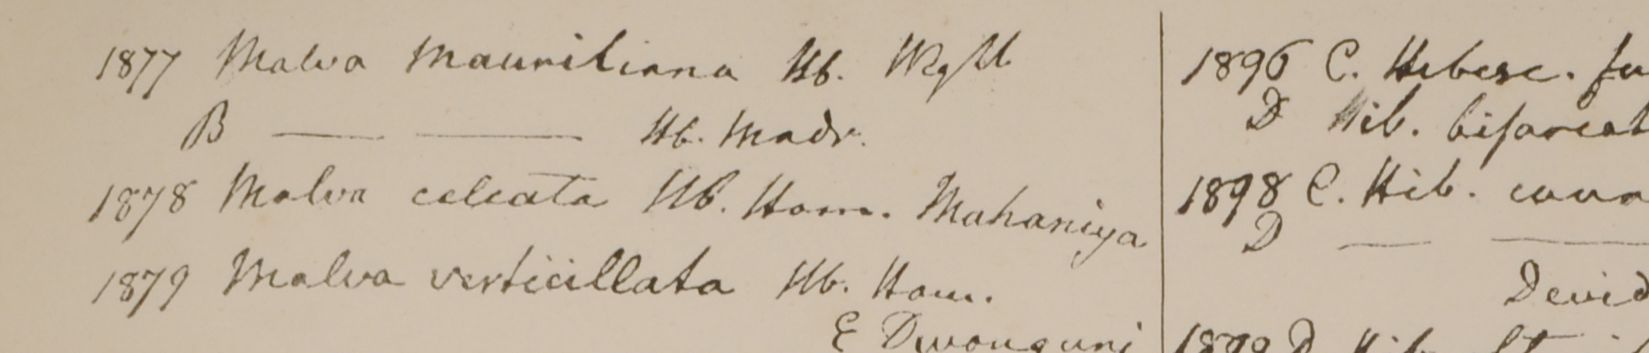 1877 Malva Mauritiana Hb. Wight
B — — Hb. Madr.
1878 Malva celcata Hb. Ham. Mahaniya
1879 Malva verticillata Hb. Ham.
E
1896 C. Hibesc. fu
D Hib. bifurcat
1898 C. Hib. cann
D — —
David
1899 D Hib.